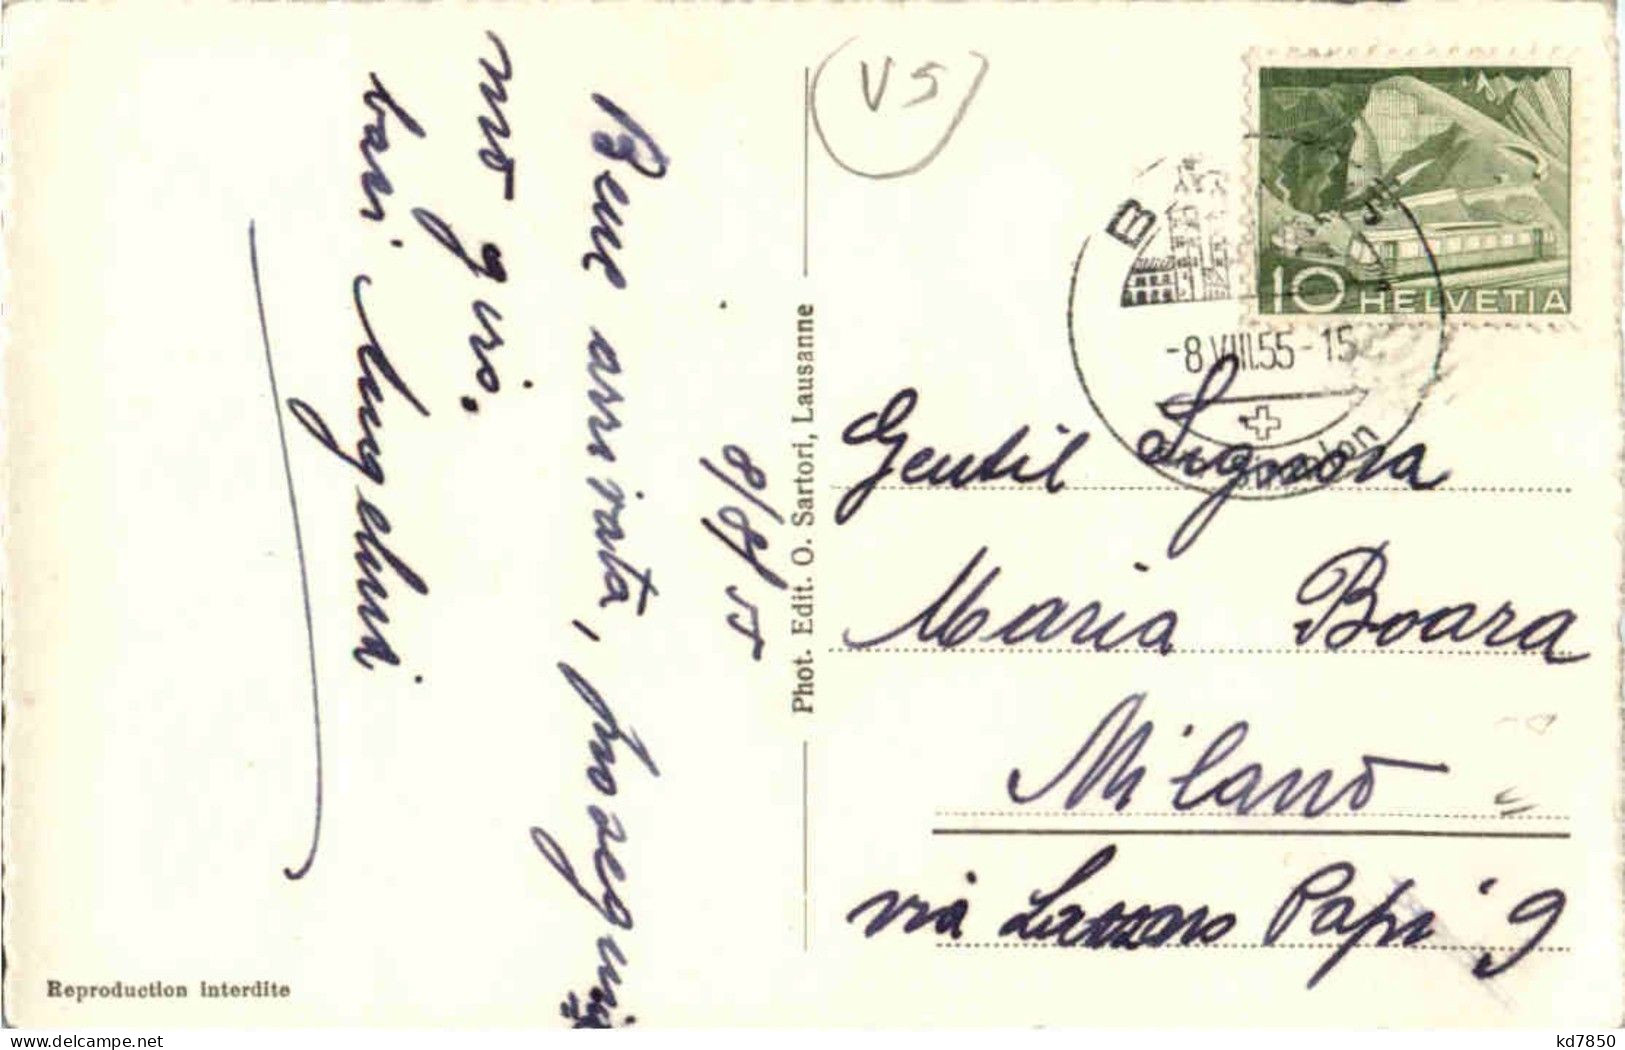 8/8/55
Bene arrivata, proseguo
mio giro.
bari
Phot. Edit. O. Sartori, Lausanne
Reproduction interdite
V S
10 HELVETIA
-8.VIII.55-15
Gentil Signora
Maria Boara
Milano
via Lazzaro Papi 9
delcampe.net
kd7850